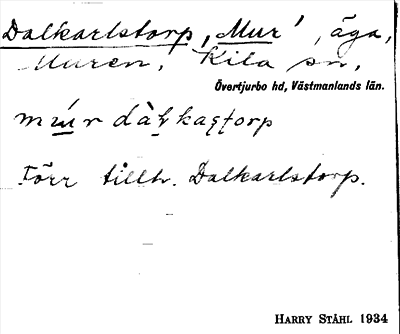 Dalkarlstorp, Mur', äga,
Muren, Kila sn,
Övertjurbo hd, Västmanlands län.
Förr tillh. Dalkarlstorp.
HARRY STÅHL 1934